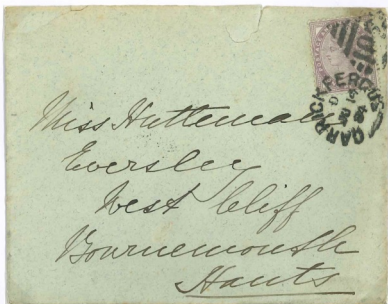 CARRICKFERGUS
Miss Hutteman
Eversley
West Cliff
Bournemouth
Hants